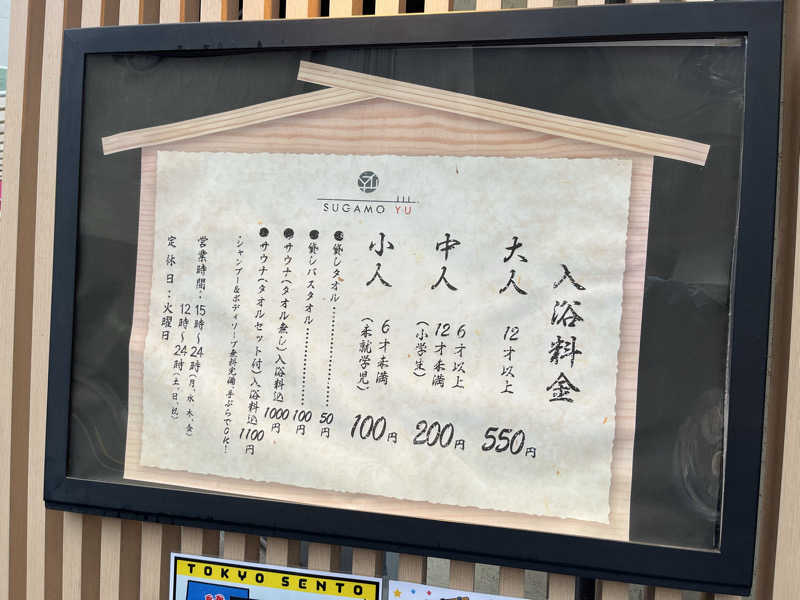 SUGAMO YU
入浴料金
大人 12才以上 550円
中人 6才以上 12才未満 (小学生) 200円
小人 6才未満 (未就学児) 100円
貸しタオル…………………50円
貸しバスタオル……………100円
サウナ(タオル無し)入浴料込 1000円
サウナ(タオルセット付)入浴料込 1100円
・シャンプー&ボディソープ無料完備 手ぶらでOK!
営業時間:15時〜24時(月、水、木、金)
12時〜24時(土、日、祝)
定休日:火曜日
TOKYO SENTO